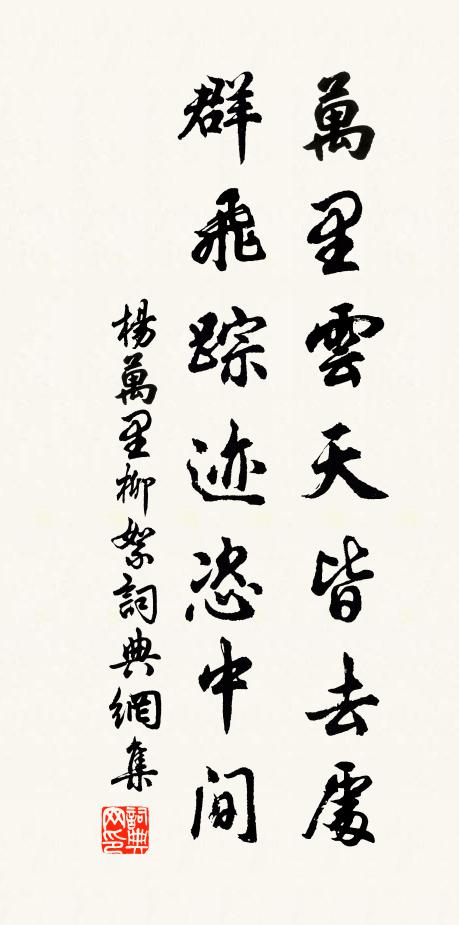 萬里雲天皆去處
群飛踪迹恣中間
楊萬里柳絮詞典網集
詞典网印